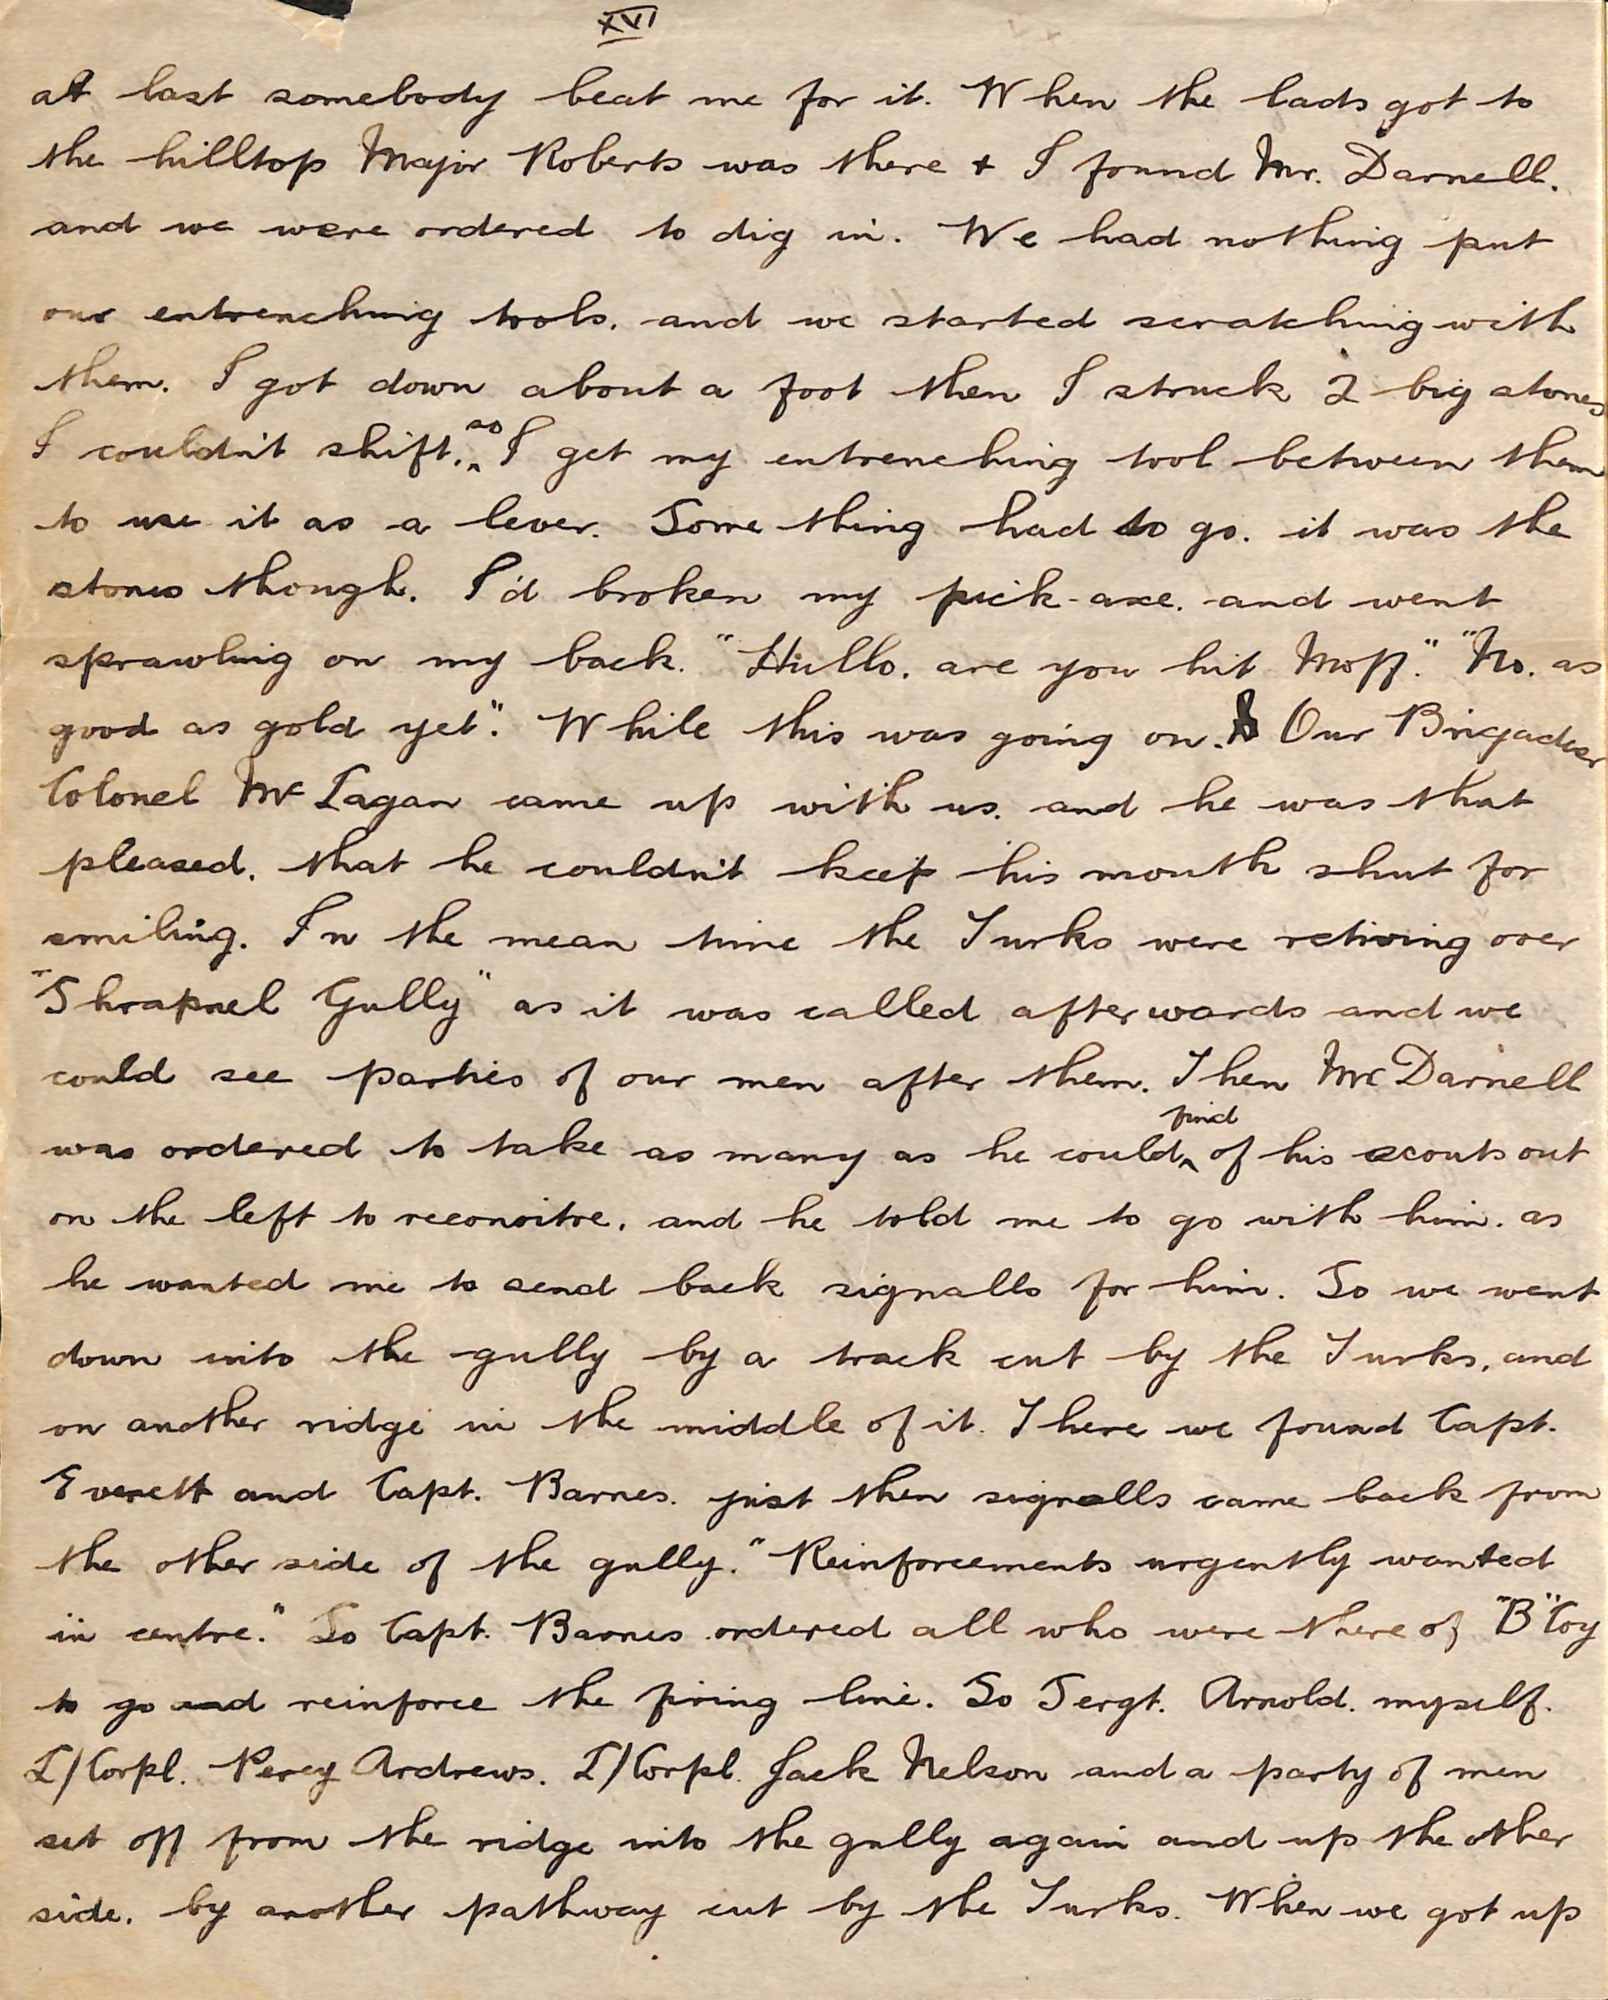 XVI
at last somebody beat me for it. When the lads got to
the hilltop Major Roberts was there + I found Mr. Darnell.
and we were ordered to dig in. We had nothing put
our entrenching tools. and we started scratching with
them. I got down about a foot then I struck 2 big stones
I couldn't shift. so I get my entrenching tool between them
to use it as a lever. Some thing had to go. it was the
stones though. I'd broken my pick-axe. and went
sprawling on my back. "Hullo. are you hit Moff." "No. as
good as gold yet". While this was going on. Our Brigadier
Colonel Mc Lagan came up with us. and he was that
pleased. that he couldn't keep his mouth shut for
smiling. In the mean time the Turks were retiring over
"Shrapnel Gully" as it was called afterwards and we
could see parties of our men after them. Then Mr Darnell
was ordered to take as many as he could find of his scouts out
on the left to reconoitre. and he told me to go with him. as
he wanted me to send back signalls for him. So we went
down into the gully by a track cut by the Turks. and
on another ridge in the middle of it. There we found Capt.
Everett and Capt. Barnes. just then signalls came back from
the other side of the gully. "Reinforcements urgently wanted
in centre." So Capt. Barnes ordered all who were there of "B" Coy
to go and reinforce the firing line. So Sergt. Arnold. myself.
L/Corpl. Percy Andrews. L/Corpl. Jack Nelson and a party of men
set off from the ridge into the gully again and up the other
side. by another pathway cut by the Turks. When we got up